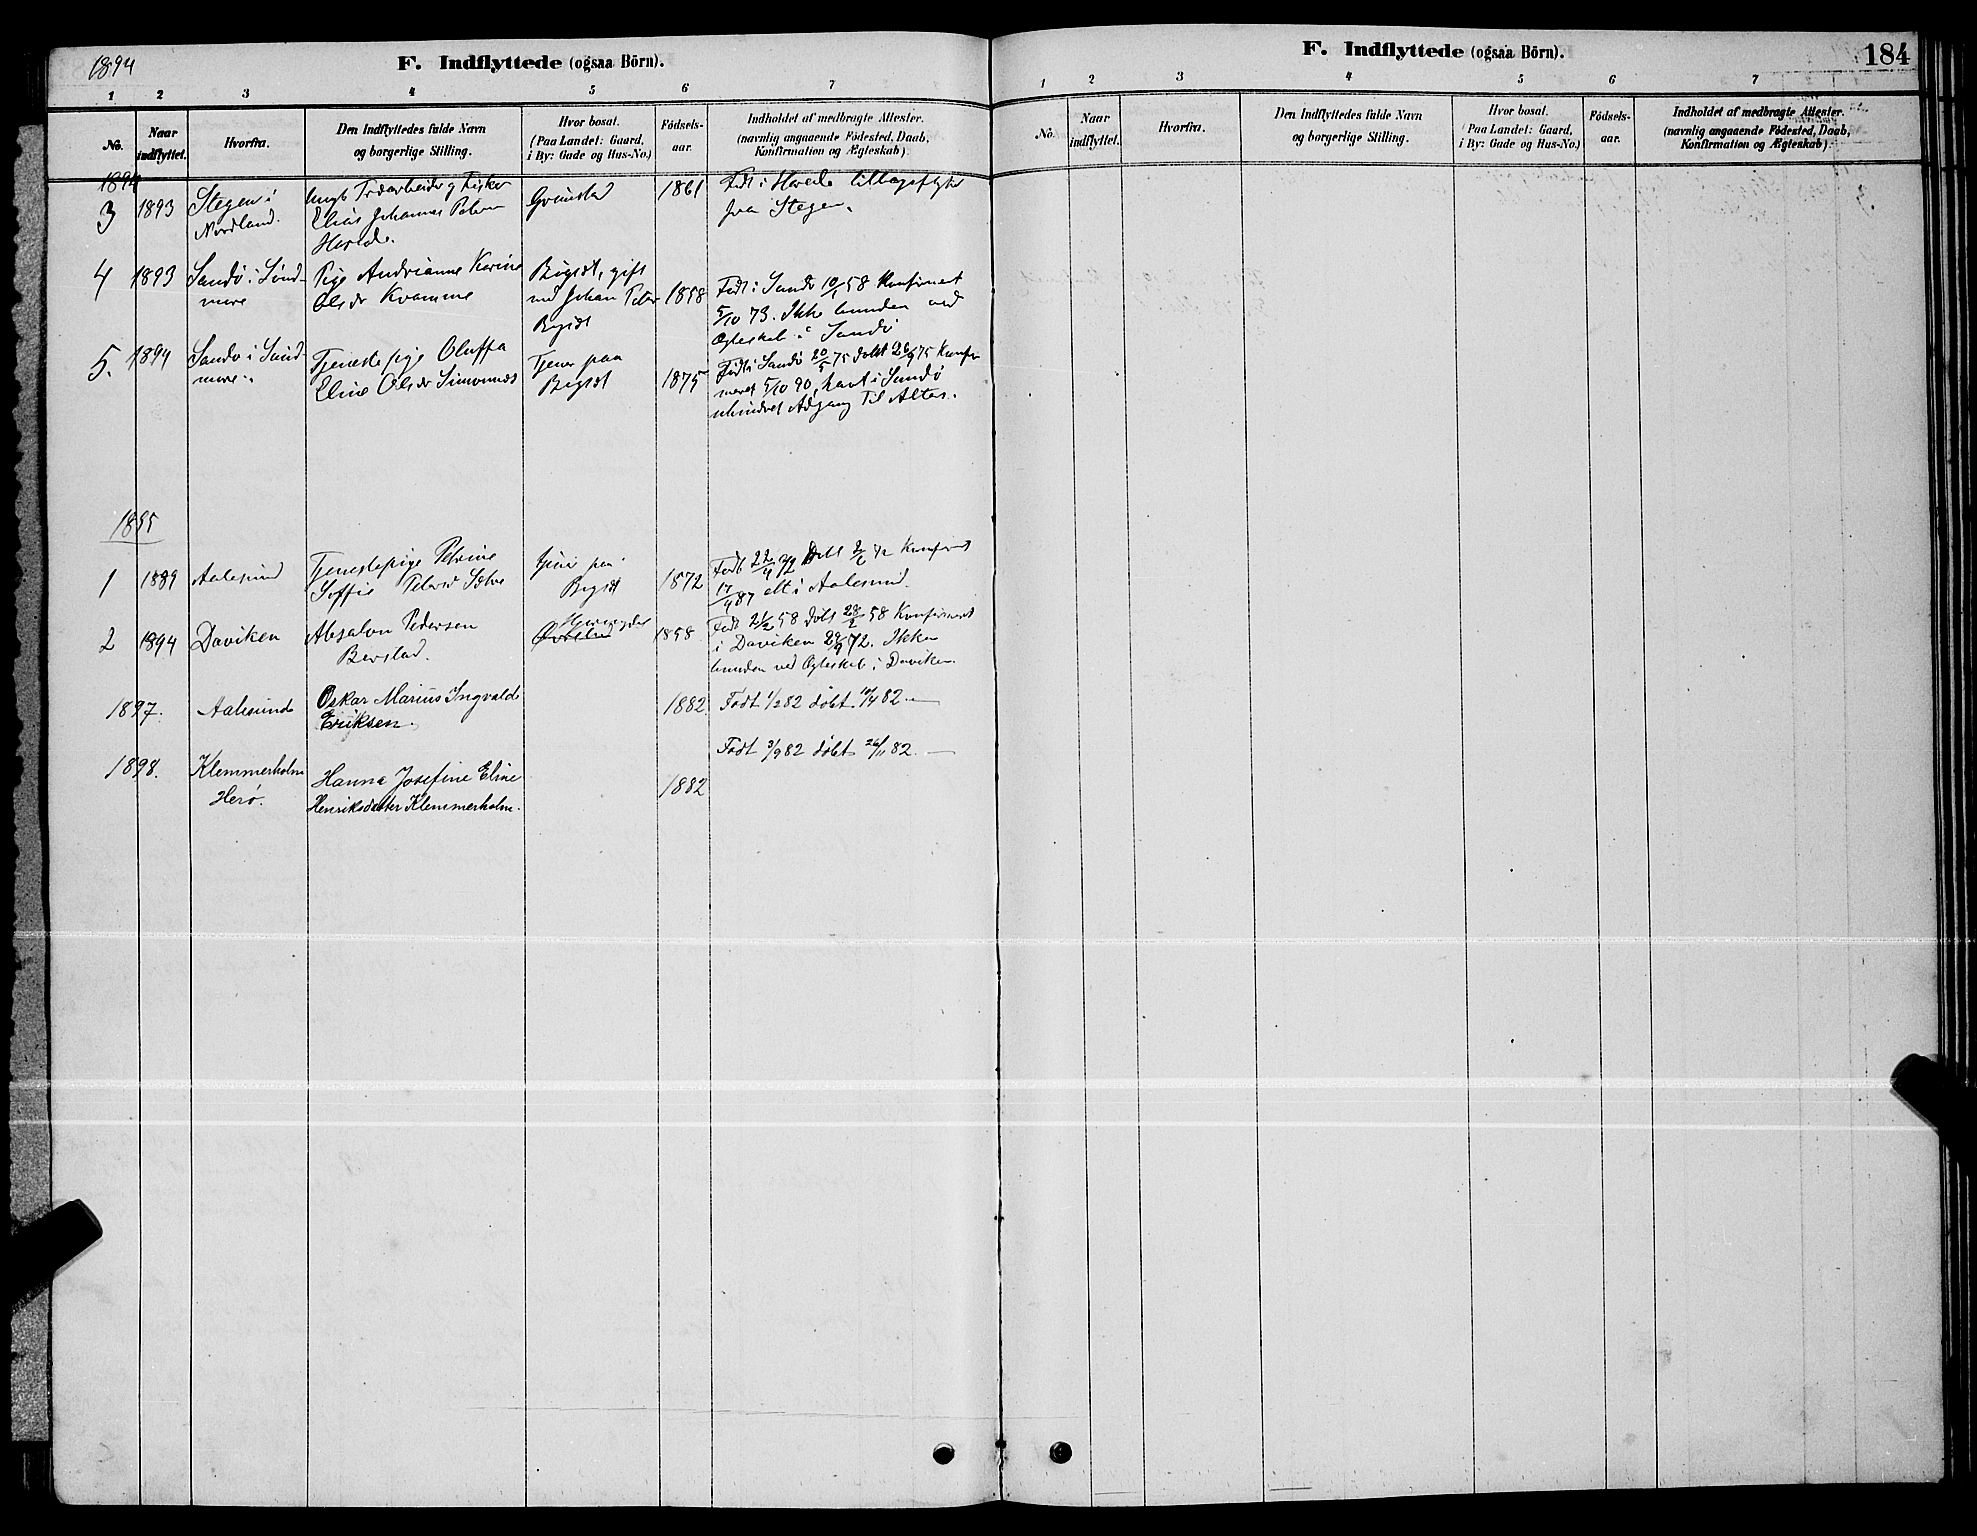 1894
F. Indflyttede (ogsaa Börn).
1 2 3 4 5 6 7
No.
Naar
indflyttet.
Hvorfra.
Den Indflyttedes fulde Navn
og borgerlige Stilling.
Hvor bosat.
(Paa Landet: Gaard,
i By: Gade og Hus-No.)
Födsels-
aar.
Indholdet af medbragte Attester.
(navnlig angaaende Födested, Daab,
Konfirmation og Ægteskab)
1894
3
1893
Stegen i
Nordland.
Træarbeider og Fisker
Elias Johannes
Grimstad
1861
Födt i
fra Stegen.
4
1893
Sandö i Sönd-
møre
Pige Andrianne Karine
Olsdr Kvamme
Bigset, gift
med Johan Peter
Bigset
1858
Födt i Sandö 58 Konfirmert
5/10 73. Ikke bunden ved
Egteskab i Sandö
5.
1894
Sandö i Sönd-
møre
Tjenestepige Oluffa
Eline Olsdr Simonnes
Tjener paa
Bigset
1875
Födt i Sandö 20/5 75 döbt 26/9 75 Konfir-
meret 5/10 90, havt i Sandö
uhindret Adgang til Alter.
1895
1
1889
Aalesund
Tjenestepige Petrine
Soffie
paa
Bigset
1872
Födt 22/4 72
alt i Aalesund.
2
1894
Daviken
Absalon Pedersen
Berstad.
1858
Födt 58 döbt 58 Konfirmert
i Daviken 29/9 72. Ikke
bunden ved Egteskab i Daviken.
1897.
Aalesund
Oskar Marius Ingvald
Eriksen.
1882.
Födt 1/2 82 döbt 82.
1898.
Klemmerholm
Herö.
Hanna Josefine Eline
Henriksdatter Klemmerholm.
1882
Födt 3/9 82 döbt 26/11 82.
F. Indflyttede (ogsaa Börn).
184
1 2 3 4 5 6 7
No.
Naar
indflyttet.
Hvorfra.
Den Indflyttedes fulde Navn
og borgerlige Stilling.
Hvor bosat.
(Paa Landet: Gaard,
i By: Gade og Hus-No.)
Födsels-
aar.
Indholdet af medbragte Attester.
(navnlig angaaende Födested, Daab,
Konfirmation og Ægteskab).